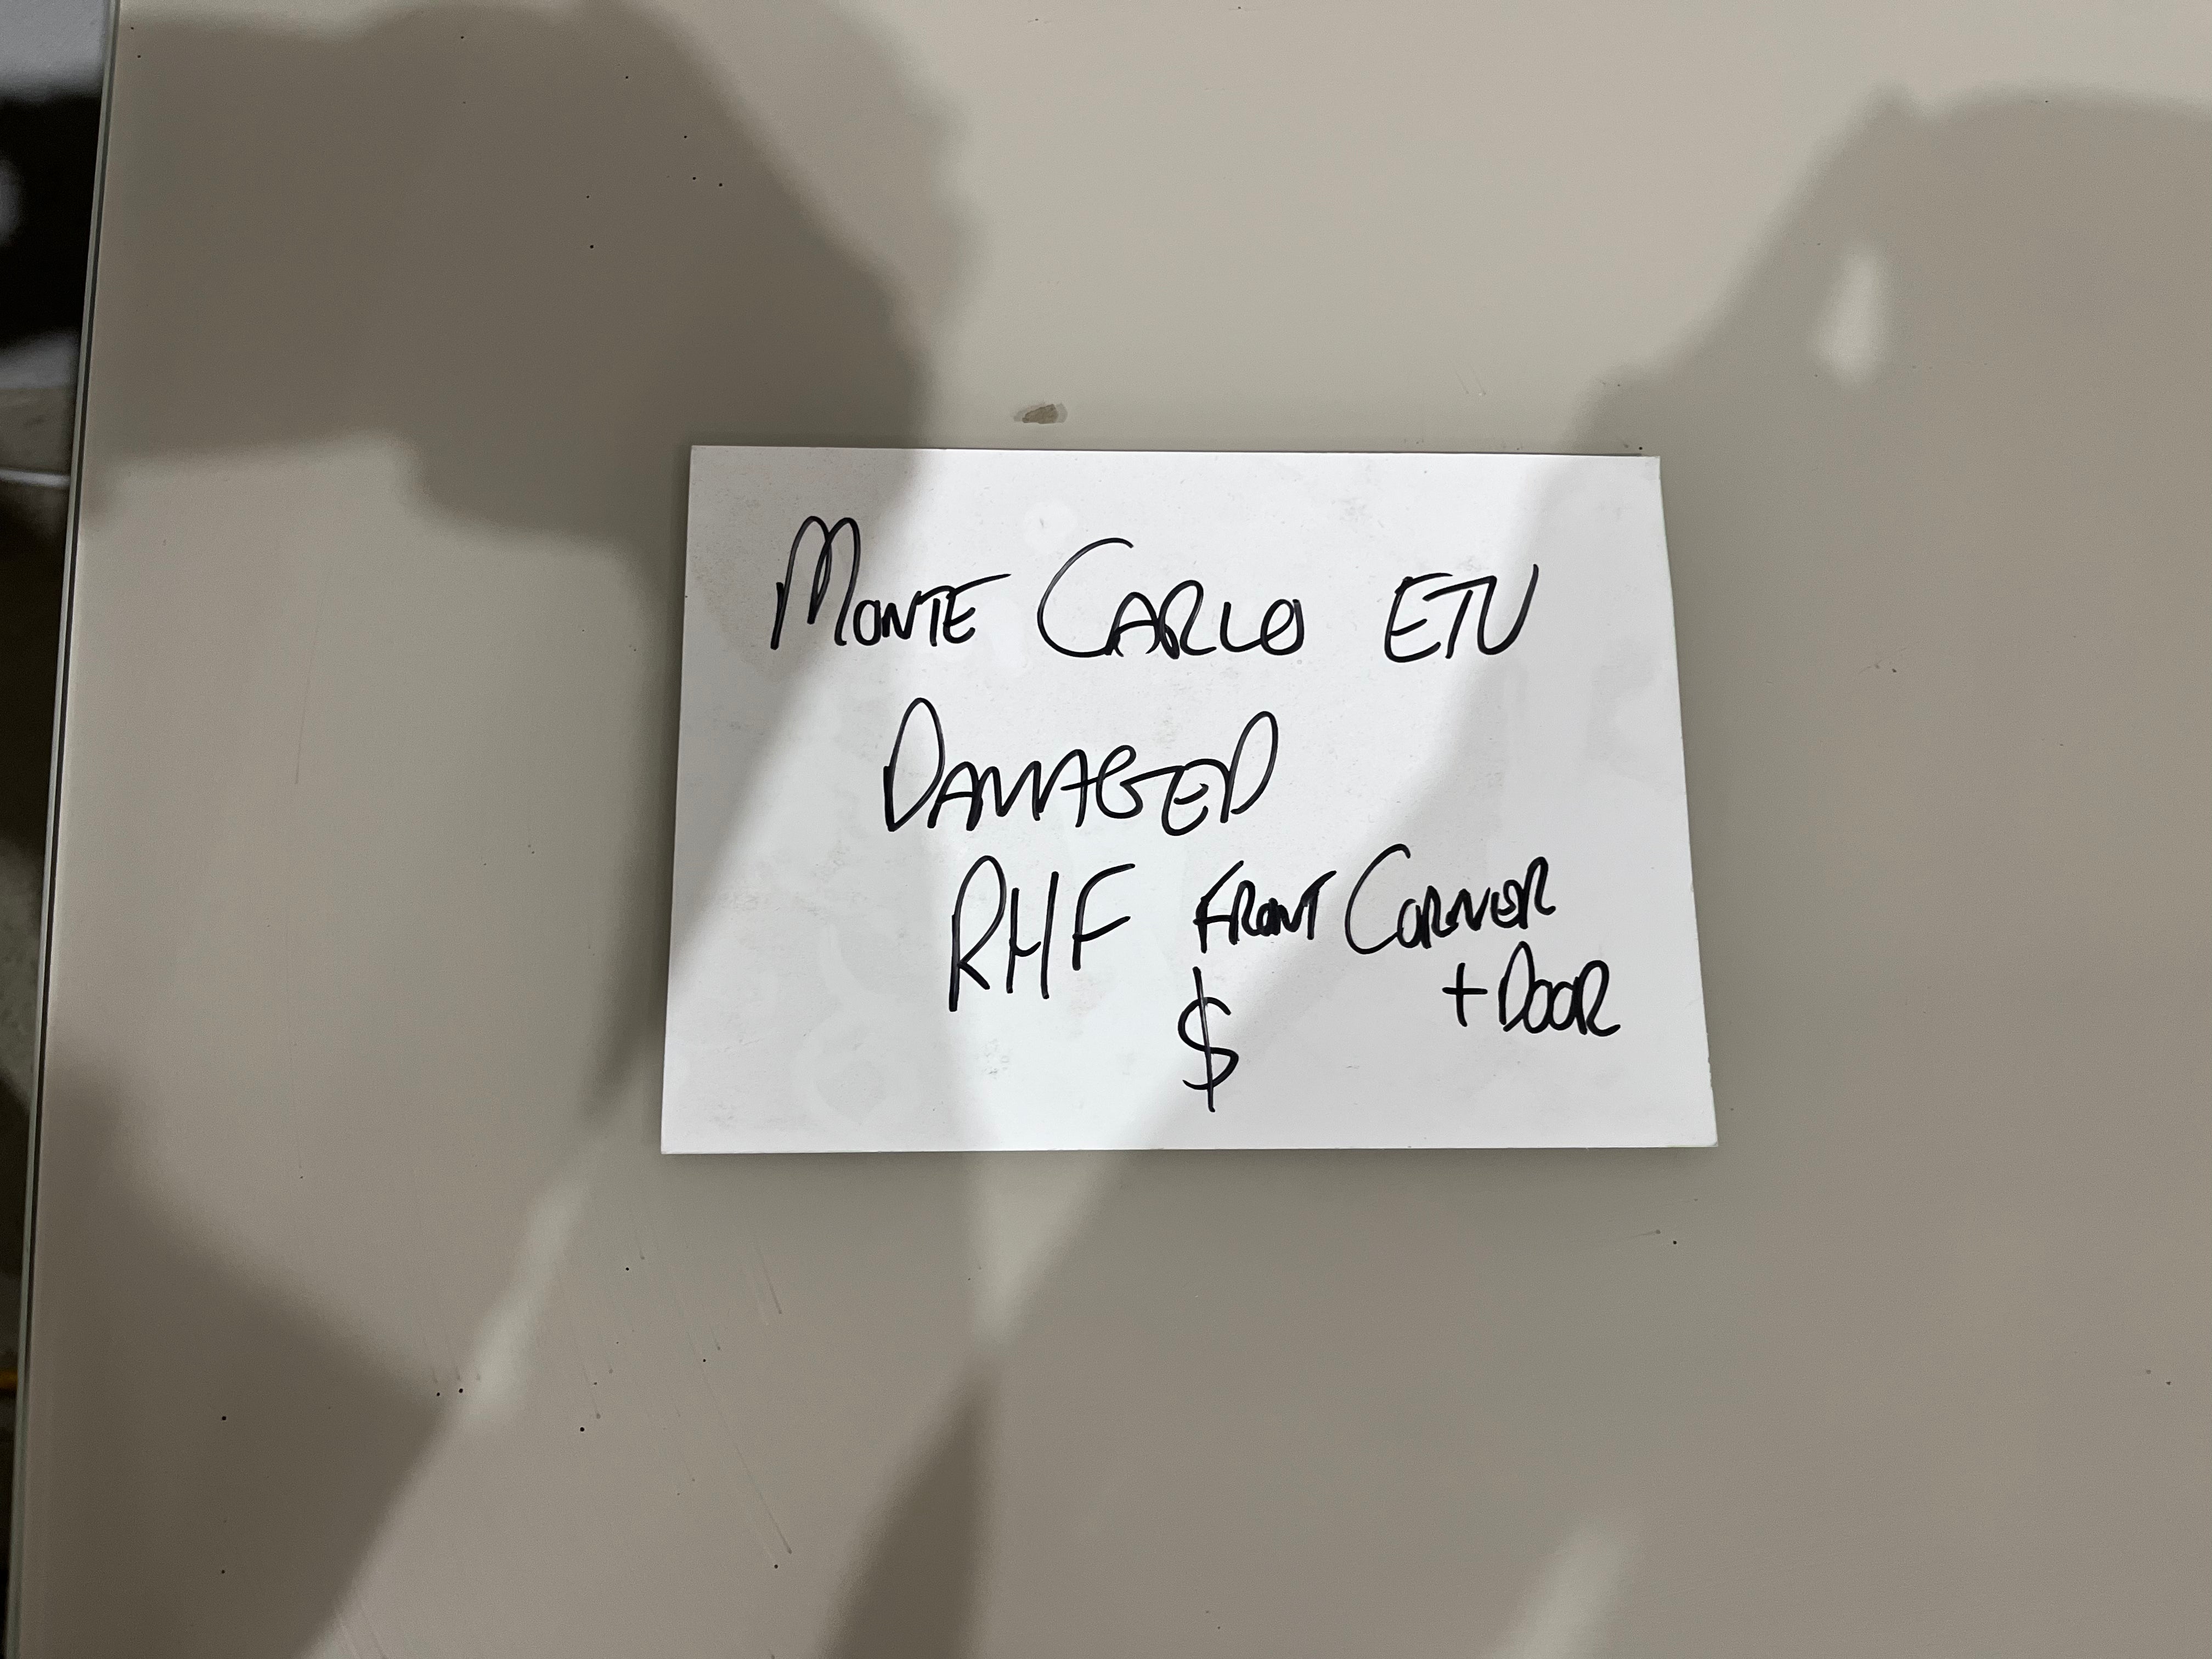 MONTE CARLO ETU
DAMAGED
RHF FRONT CORNER
+ DOOR
$